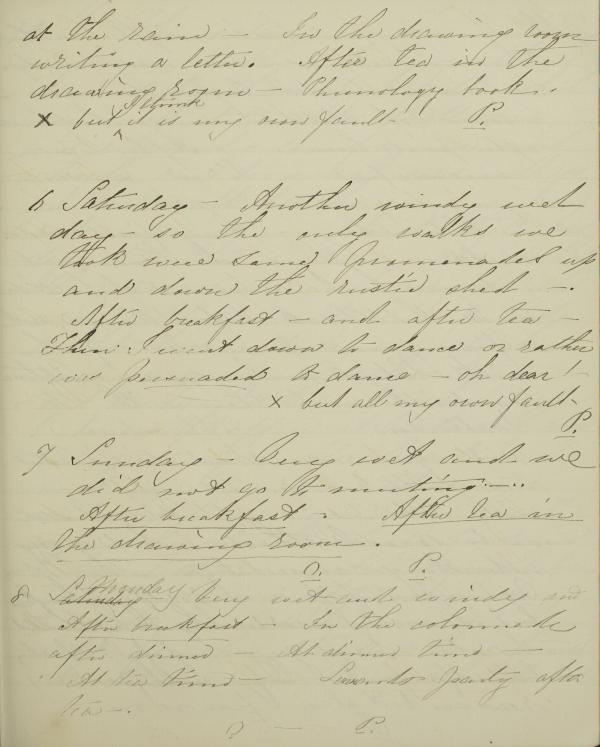 at the rain — In the drawing room
writing a letter. After tea in the
drawing room — Phrenology book.
I think
x but it is my own fault — P.
6 Saturday — Another windy wet
day — so the only walks we
took were some promenades up
and down the rustic shed —.
After breakfast — and after tea —
Then I went down to dance or rather
was persuaded to dance — oh dear! —
x but all my own fault —
P.
7 Sunday — Very wet and we
did not go to meeting —..
After breakfast. After tea in
the drawing room.
P.
8 Saturday Monday very wet and windy and
After breakfast — In the colonnade
after dinner — At dinner time —
At tea time — party after
tea —.
P.